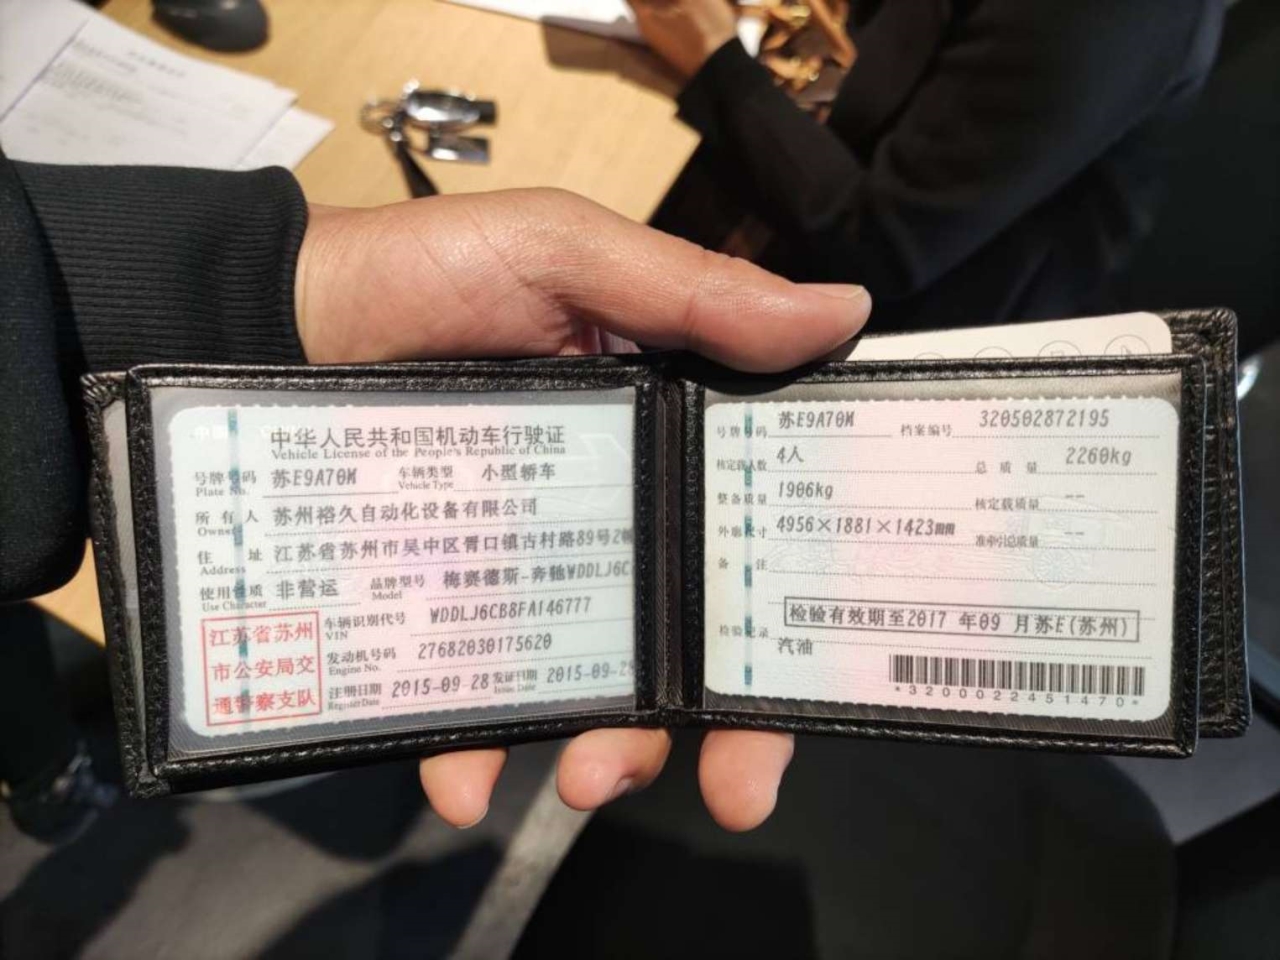 中华人民共和国机动车行驶证
Vehicle License of the People's Republic of China
号牌号码 苏E9A70M 车辆类型 小型轿车
Plate No. Vehicle Type
所有人 苏州裕久自动化设备有限公司
Owner
住址 江苏省苏州市吴中区胥口镇古村路89号2幢
Address
使用性质 非营运 品牌型号 梅赛德斯-奔驰WDDLJ6C
Use Character Model
江苏省苏州
市公安局交
通警察支队
车辆识别代号 WDDLJ6CB8FA146777
VIN
发动机号码 27682030175620
Engine No.
注册日期 2015-09-28 发证日期 2015-09-28
Register Date Issue Date
号牌号码 苏E9A70M 档案编号 320502872195
核定载人数 4人 总质量 2260kg
整备质量 1906kg 核定载质量 --
外廓尺寸 4956×1881×1423mm 准牵引总质量 --
备注
检验有效期至2017年09月苏E(苏州)
检验记录
汽油
*3200022451470*